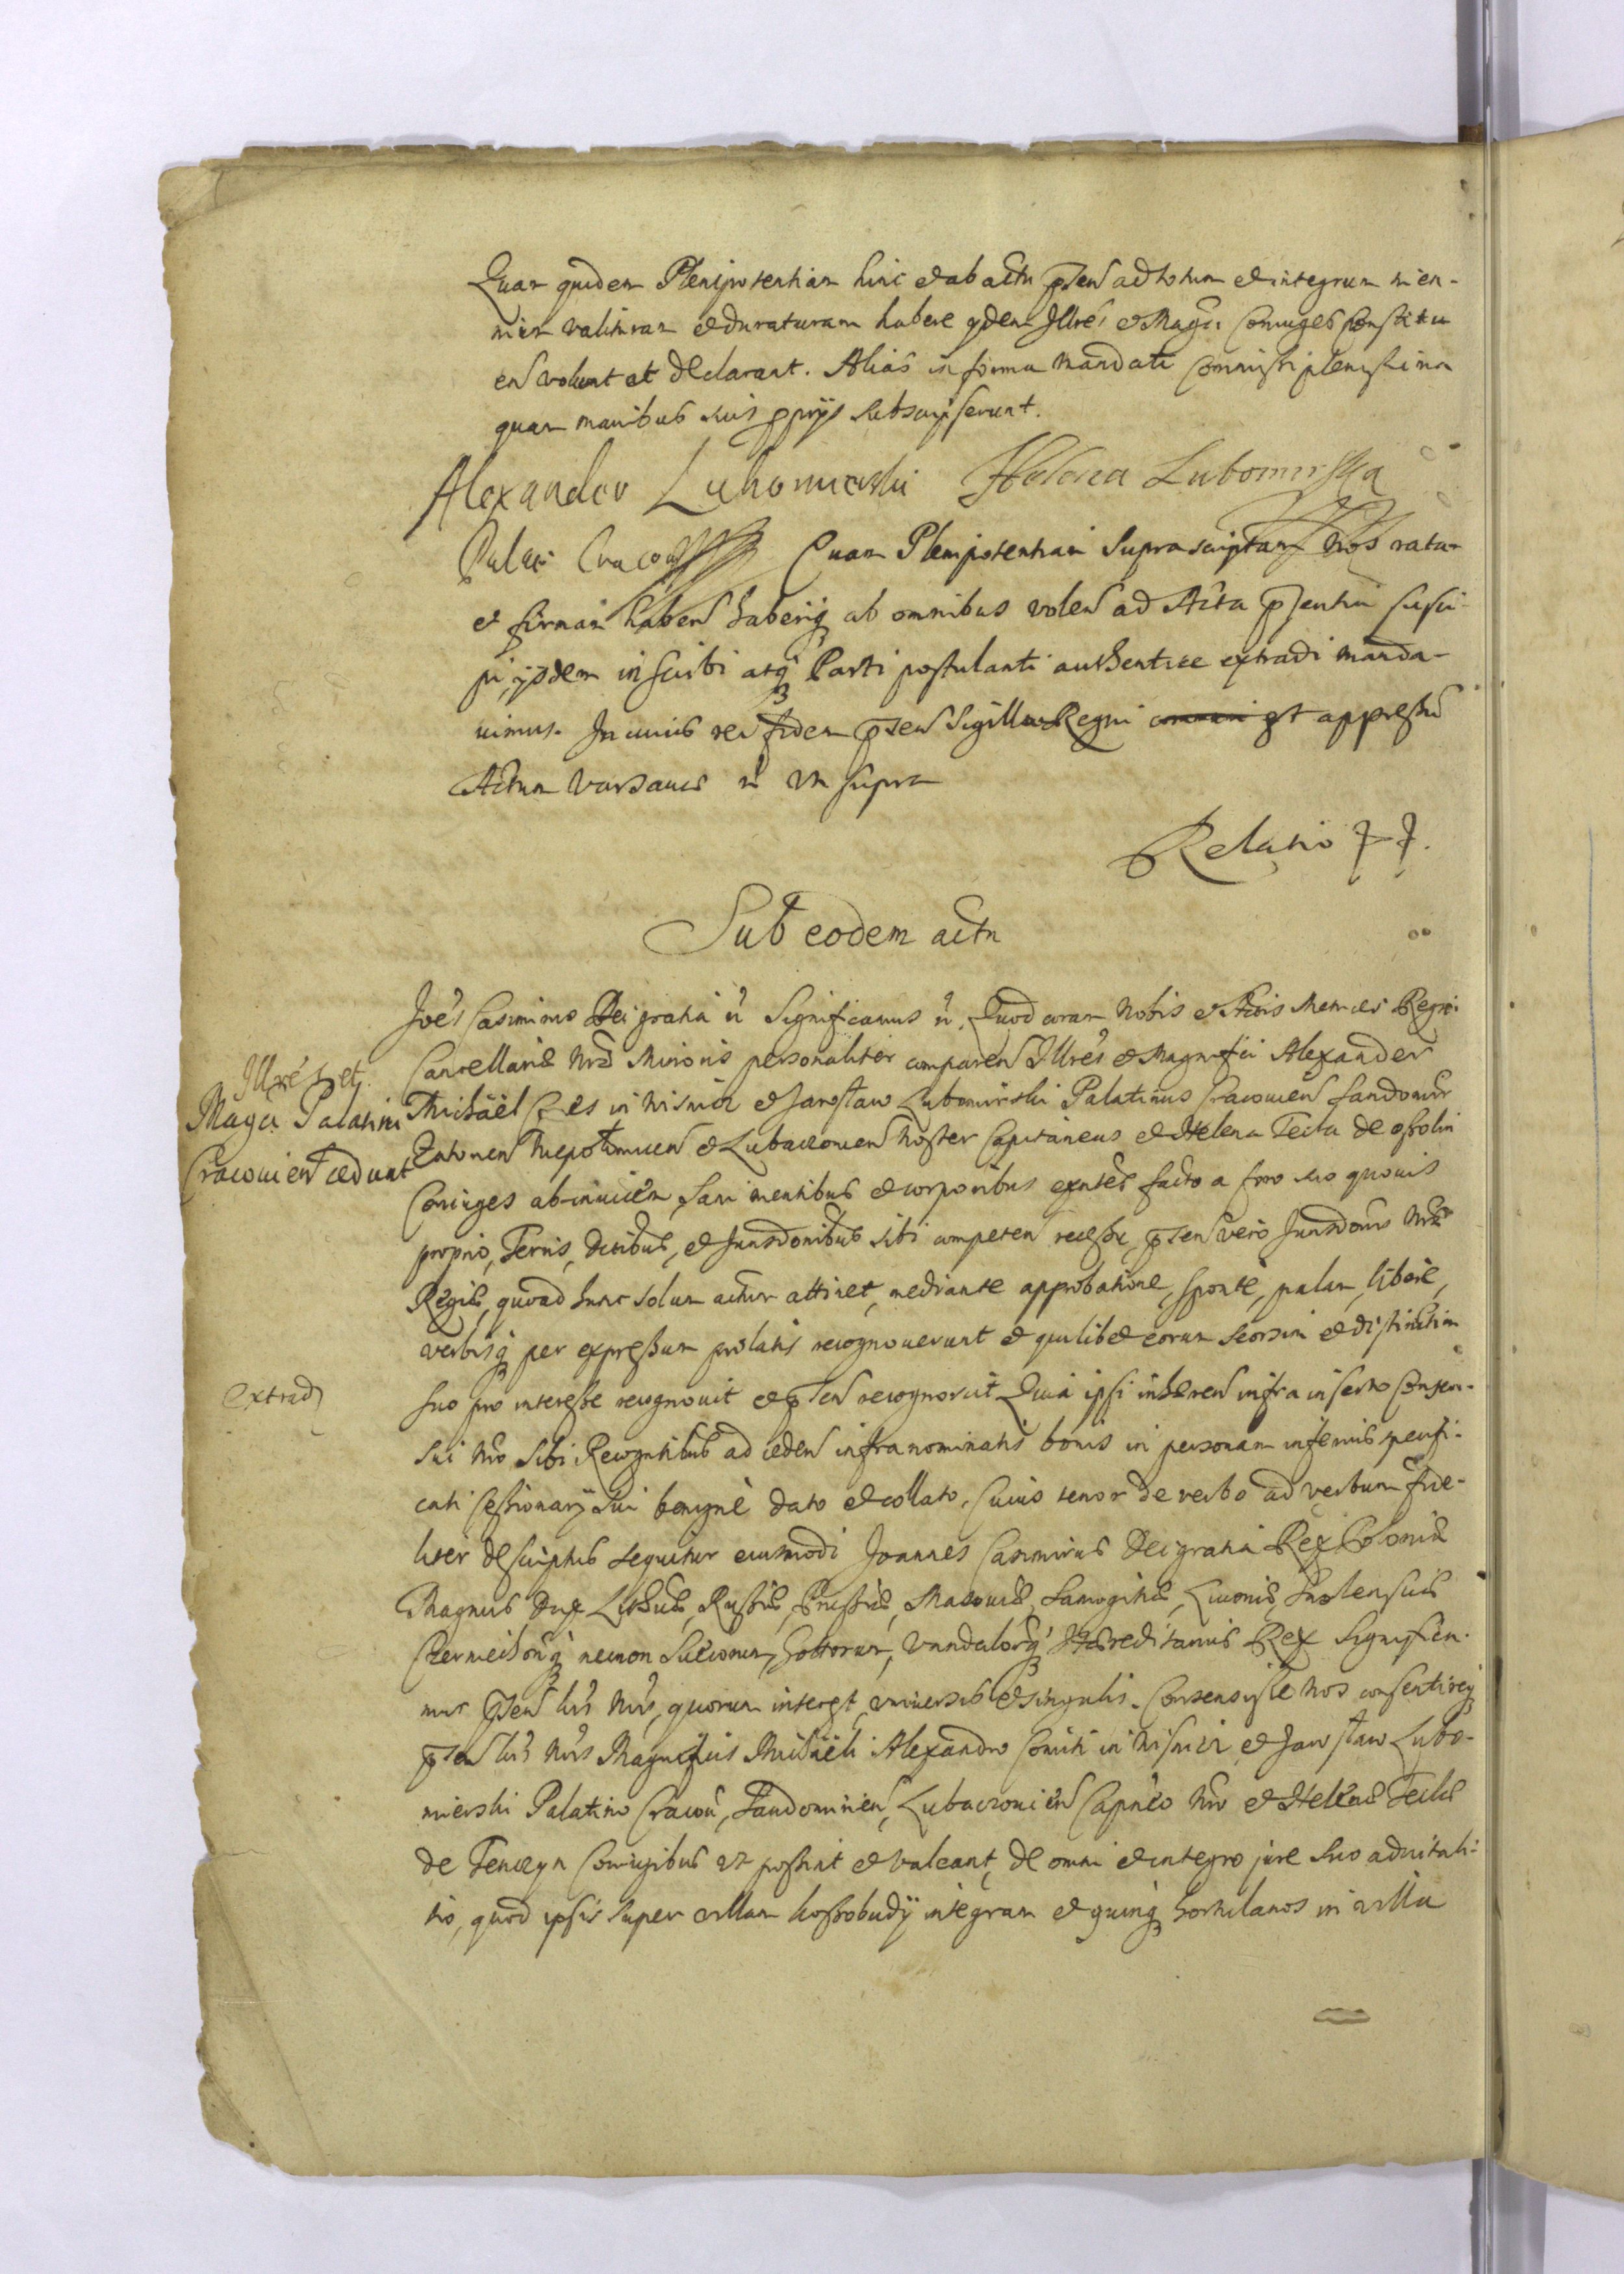 Quam quidem Plenipotentiam hinc et ab actu pñten ad totum et integrum trien-
nium valituram et duraturam habere ijdem Illres et Magci Coniuges Constitu
en volunt et declarant. Alias in forma Mandati Commissi plenissima
quam manibus suis pprijs subscripserunt.
Alexander Lubomierski Helena Lubomirska
Palat: Cracou Quam Plenipotentiam Suprascriptam Nos ratam
et firmam haben haberiq ab omnibus volen ad Acta pñtium susci-
pi, ijsdem inscribi atq Parti postulanti authentice extradi manda-
uimus. In cuius rei fidem pñten Sigillum Regni est appressu
Actum Varsauiae ut supra
Relatio
Sub eodem actu
Joes Casimirus Dei gratia Significamus Quod coram Nobis et Actis Metrices Regni
Cancellariae Nrae Minoris personaliter comparen Illres et Magnifici Alexander
Illres et
Magci Palatini
Cracouien cedunt
Michael Cōes in Wisnicz et Jaroslaw Lubomirski Palatinus Cracouien Sandomir
Zatorien Niepolomicen et Lubaczouien Noster Capitaneus et Helena Tecla de Ossolin
Coniuges ab inuicem sani mentibus et corporibus exntes facto a foro suo quouis
proprio, Terris, Ditibus, et Jurisdonibus sibi competen recessu, pñten vero Jurisdonis Nrae
Regiae, quoad hunc solum actum attinet, mediante approbatione, sponte, palam, libere,
verbisq per expressum prolatis recognouerunt et quilibet eorum seorsim et distinctim
extrad
suo pro interesse recognouit et pñten recognoscit Quia ipsi inhaeren infra inserto Consen-
sui Nro sibi Recogntibus ad ceden infranominatis bonis in personam inferius specifi-
cati Cessionarij sui benigne dato et collato, Cuius tenor de verbo ad verbum fide-
liter descriptus sequitur eiusmodi Joannes Casimirus Dei gratia Rex Poloniae
Magnus Dux Lithuae, Russiae, Prussiae, Masouiae, Samogitiae, Liuoniae, Smolensciae
Czerniechouq necnon Suecorum, Gottorum, Vandalorq Haereditarius Rex Significa-
mus pñten lris Nris, quorum interest, vniuersis et singulis. Consensisse Nos consentireq
pñten lris Nris Magnificis Michaeli Alexandro Comiti in Wisnicz et Jaroslaw Lubo-
mierski Palatino Cracou, Sandomirien, Lubaczouien Capneo Nro et Helenae Teclae
de Tenczyn Coniugibus vt possint et valeant, de omni et integro jure suo aduitali-
tio, quod ipsis super villam kossobudÿ integram et quinq hortulanos in villa